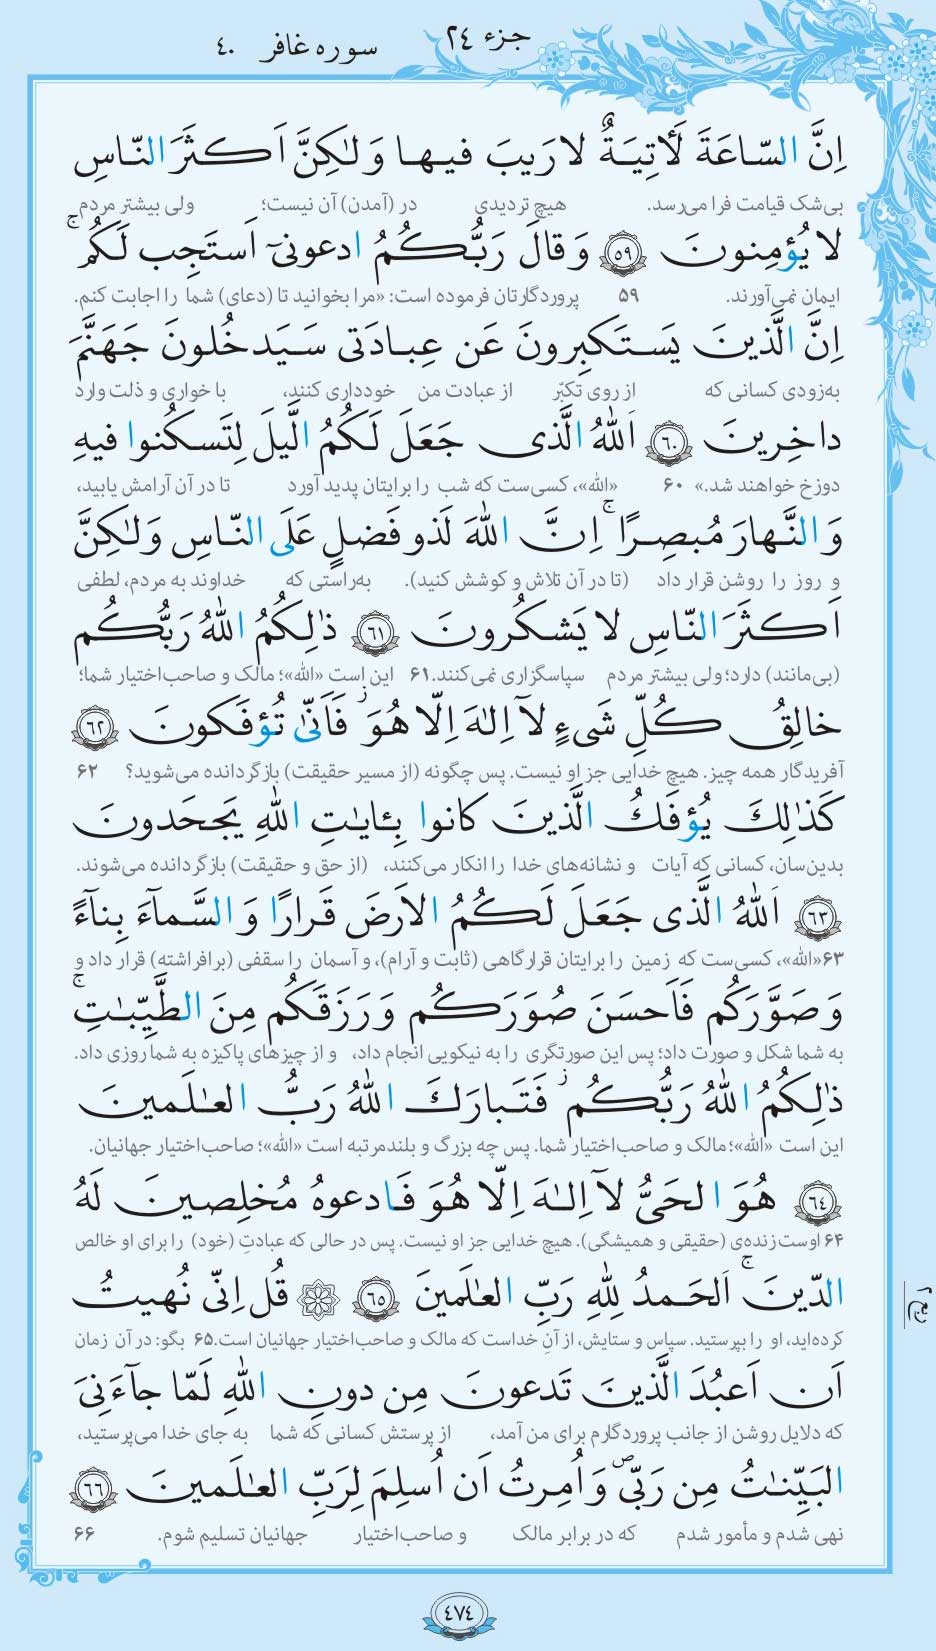 جزء ٢٤
سوره غافر ٤٠
اِنَّ السّاعَةَ لَأٰتِيَةٌ لا رَيبَ فيها وَ لٰكِنَّ اَكثَرَ النّاسِ
بی‌شک قیامت فرا می‌رسد. هیچ تردیدی در (آمدن) آن نیست؛ ولی بیشتر مردم
لا يُؤمِنونَ ﴿٥٩﴾ وَ قالَ رَبُّكُمُ ادعونىٓ اَستَجِب لَكُم ۚ
ایمان نمی‌آورند. ۵۹ پروردگارتان فرموده است: «مرا بخوانید تا (دعای) شما را اجابت کنم.
اِنَّ الَّذينَ يَستَكبِرونَ عَن عِبادَتى سَيَدخُلونَ جَهَنَّمَ
به‌زودی کسانی که از روی تکبّر از عبادت من خودداری کنند، با خواری و ذلت وارد
داخِرينَ ﴿٦٠﴾ اَللّٰهُ الَّذى جَعَلَ لَكُمُ الَّيلَ لِتَسكُنوا فيهِ
دوزخ خواهند شد.» ۶۰ «الله»، کسی‌ست که شب را برایتان پدید آورد تا در آن آرامش یابید،
وَ النَّهارَ مُبصِرًا ۚ اِنَّ اللّٰهَ لَذو فَضلٍ عَلَى النّاسِ وَ لٰكِنَّ
و روز را روشن قرار داد (تا در آن تلاش و کوشش کنید). به‌راستی که خداوند به مردم، لطفی
اَكثَرَ النّاسِ لا يَشكُرونَ ﴿٦١﴾ ذٰلِكُمُ اللّٰهُ رَبُّكُم
(بی‌مانند) دارد؛ ولی بیشتر مردم سپاسگزاری نمی‌کنند. ۶۱ این است «الله»؛ مالک و صاحب‌اختیار شما؛
خالِقُ كُلِّ شَىءٍ لآ اِلٰهَ اِلّا هُوَ ۖ فَاَنّىٰ تُؤفَكونَ ﴿٦٢﴾
آفریدگار همه چیز. هیچ خدایی جز او نیست. پس چگونه (از مسیر حقیقت) بازگردانده می‌شوید؟ ۶۲
كَذٰلِكَ يُؤفَكُ الَّذينَ كانوا بِـٔايٰتِ اللّٰهِ يَجحَدونَ
بدین‌سان، کسانی که آیات و نشانه‌های خدا را انکار می‌کنند، (از حق و حقیقت) بازگردانده می‌شوند.
﴿٦٣﴾ اَللّٰهُ الَّذى جَعَلَ لَكُمُ الاَرضَ قَرارًا وَ السَّمآءَ بِنآءً
۶۳ «الله»، کسی‌ست که زمین را برایتان قرارگاهی (ثابت و آرام)، و آسمان را سقفی (برافراشته) قرار داد و
وَ صَوَّرَكُم فَاَحسَنَ صُوَرَكُم وَ رَزَقَكُم مِنَ الطَّيِّبٰتِ ۚ
به شما شکل و صورت داد؛ پس این صورتگری را به نیکویی انجام داد، و از چیزهای پاکیزه به شما روزی داد.
ذٰلِكُمُ اللّٰهُ رَبُّكُم ۖ فَتَبارَكَ اللّٰهُ رَبُّ العٰلَمينَ
این است «الله»؛ مالک و صاحب‌اختیار شما. پس چه بزرگ و بلندمرتبه است «الله»؛ صاحب‌اختیار جهانیان.
﴿٦٤﴾ هُوَ الحَىُّ لآ اِلٰهَ اِلّا هُوَ فَادعوهُ مُخلِصينَ لَهُ
۶۴ اوست زنده‌ی (حقیقی و همیشگی). هیچ خدایی جز او نیست. پس در حالی که عبادتِ (خود) را برای او خالص
الدّينَ ۚ اَلحَمدُ لِلّٰهِ رَبِّ العٰلَمينَ ﴿٦٥﴾ قُل اِنّى نُهيتُ
کرده‌اید، او را بپرستید. سپاس و ستایش، از آنِ خداست که مالک و صاحب‌اختیار جهانیان است. ۶۵ بگو: در آن زمان
اَن اَعبُدَ الَّذينَ تَدعونَ مِن دونِ اللّٰهِ لَمّا جآءَنِىَ
که دلایل روشن از جانب پروردگارم برای من آمد، از پرستش کسانی که شما به جای خدا می‌پرستید،
البَيِّنٰتُ مِن رَبّى ۖ وَ اُمِرتُ اَن اُسلِمَ لِرَبِّ العٰلَمينَ ﴿٦٦﴾
نهی شدم و مأمور شدم که در برابر مالک و صاحب‌اختیار جهانیان تسلیم شوم. ۶۶
ربع ٢
٤٧٤